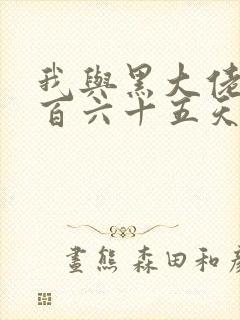 我與黑大佬
百六十五天
畫熊 森田和彥